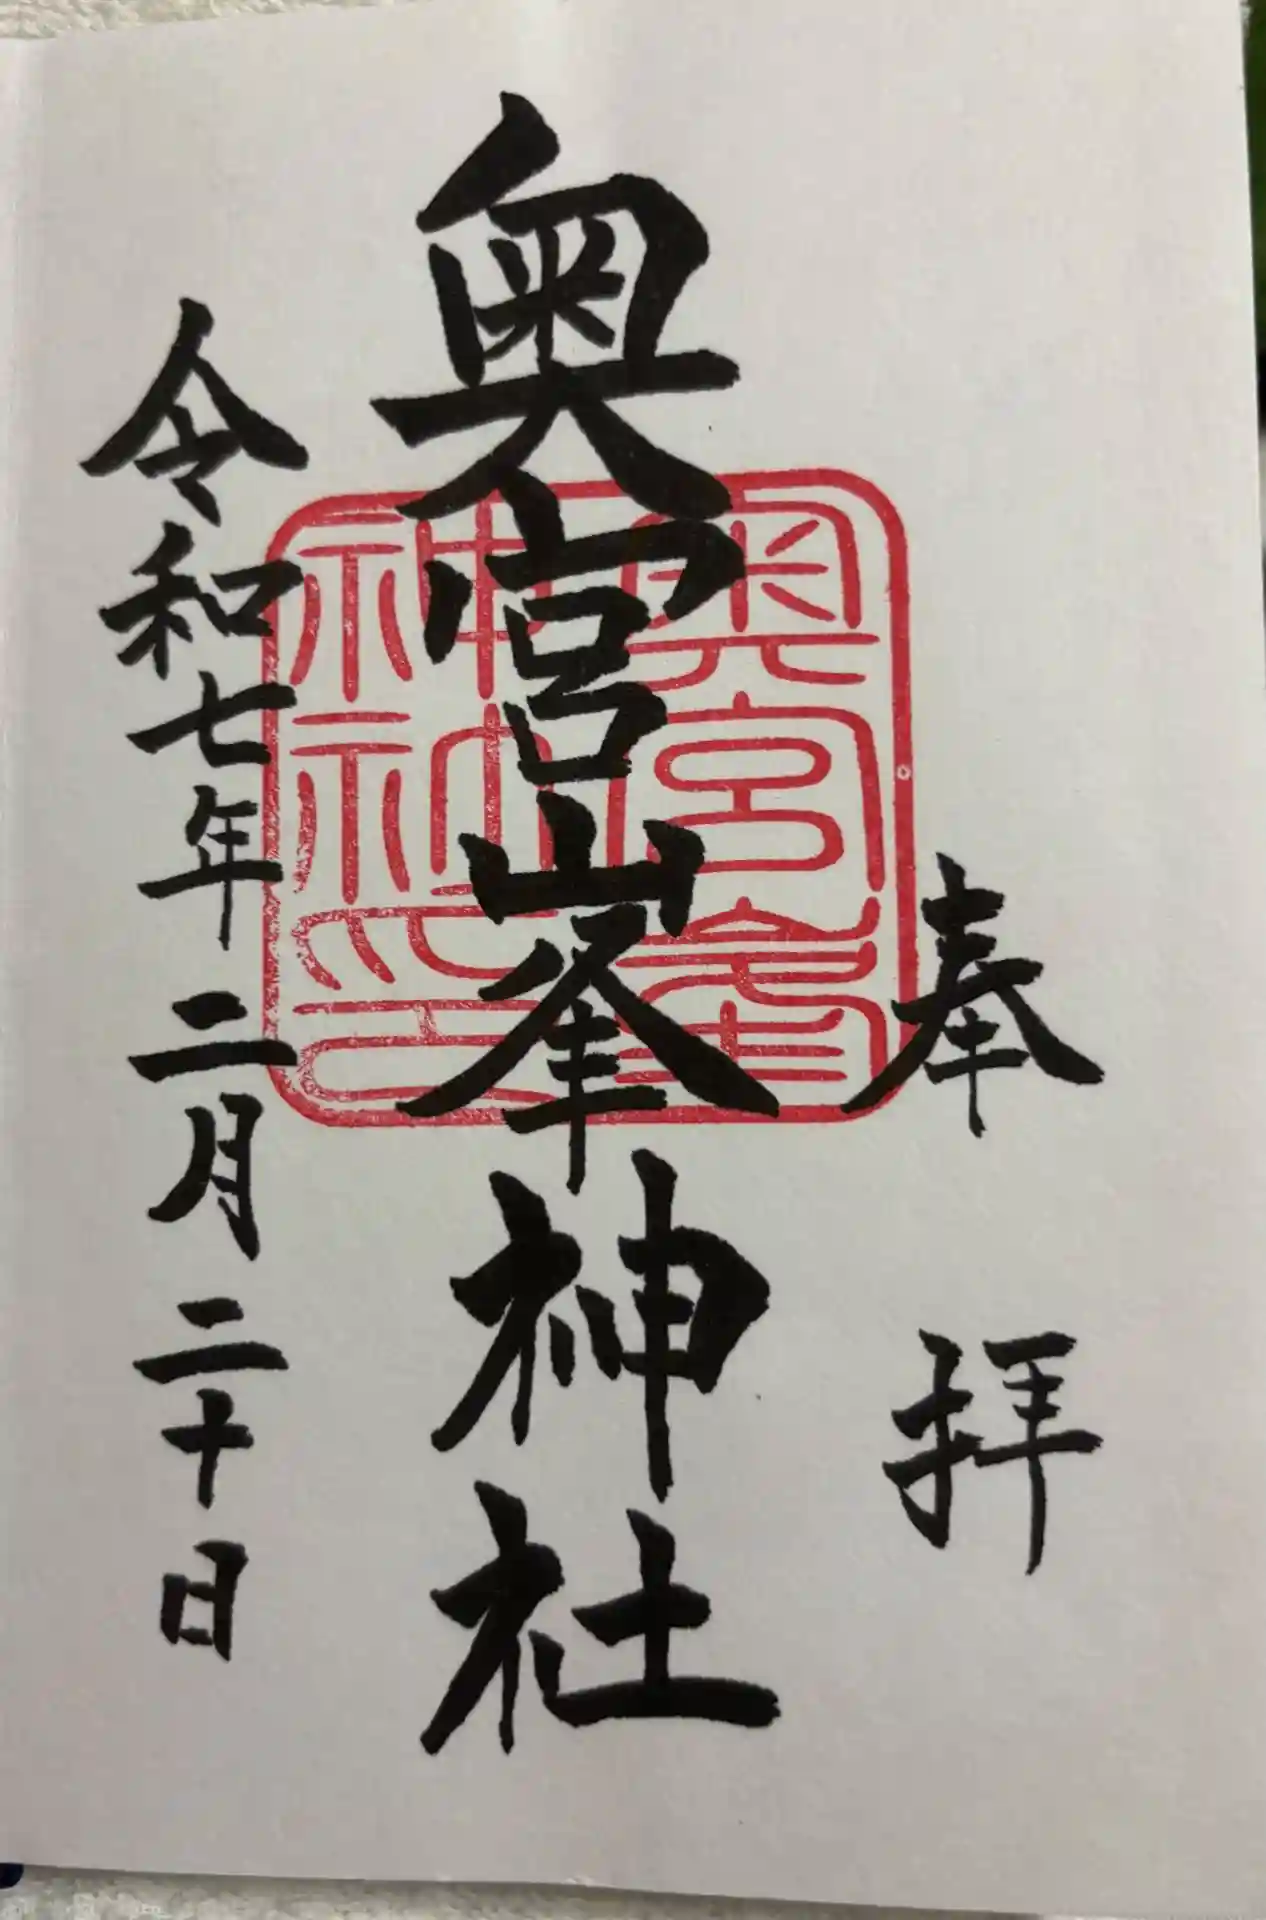 奉拝
奥宮峯神社
令和七年二月二十日
奥宮峯
神社印